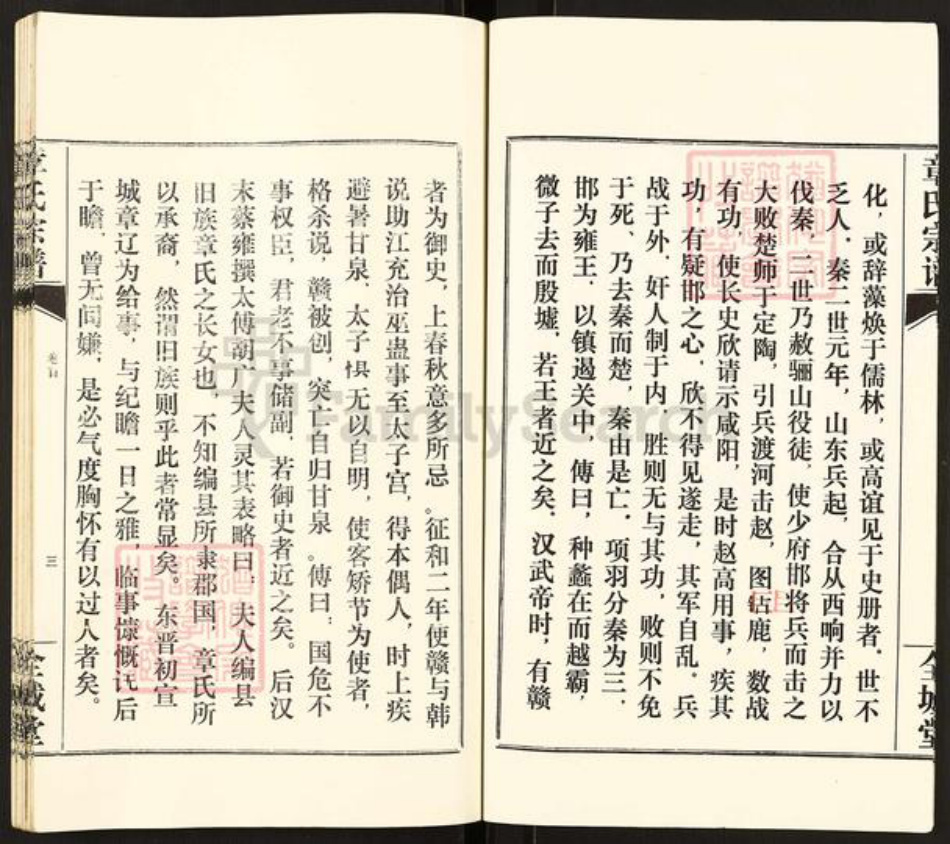 章氏宗谱
全城堂
化，或辞藻焕于儒林，或高谊见于史册者．世不
乏人．秦二世元年，山东兵起，合从西响并力以
伐秦，二世乃赦骊山役徒，使少府邯将兵而击之
大败楚师于定陶，引兵渡河击赵，图钜鹿，数战
有功，使长史欣请示咸阳，是时赵高用事，疾其
功，有疑邯之心，欣不得见遂走，其军自乱．兵
战于外，奸人制于内，胜则无与其功，败则不免
于死、乃去秦而楚，秦由是亡．项羽分秦为三．
邯为雍王．以镇遏关中，傳曰，种蠡在而越霸，
微子去而殷墟，若王者近之矣．汉武帝时，有赣
者为御史，上春秋意多所忌．征和二年使赣与韩
说助江充治巫蛊事至太子宫，得本偶人，时上疾
避暑甘泉、太子惧无以自明，使客矫节为使者，
格杀说，赣被创，突亡自归甘泉．傅曰：国危不
事权臣，君老不事储副，若御史者近之矣。后汉
末蔡雍撰太傅胡广夫人灵其表略曰：夫人编县
旧族章氏之长女也，不知编县所隶郡国，章氏所
以承裔，然谓旧族则乎此者常显矣。东晋初宣
城章辽为给事，与纪瞻一日之雅，临事慷慨讬后
于瞻，曾无间嫌，是必气度胸怀有以过人者矣。
章氏宗谱
卷首
三
全城堂
FamilySearch